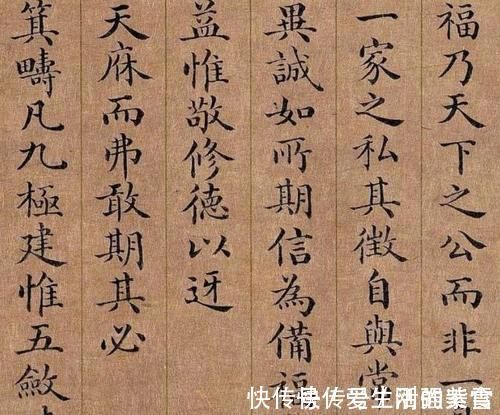 福乃天下之公而非一
一家之私其徵自與常
異誠如所期信為備福
益惟敬修德以迓
天庥而弗敢期其必
箕疇凡九極建惟五斂
快传号